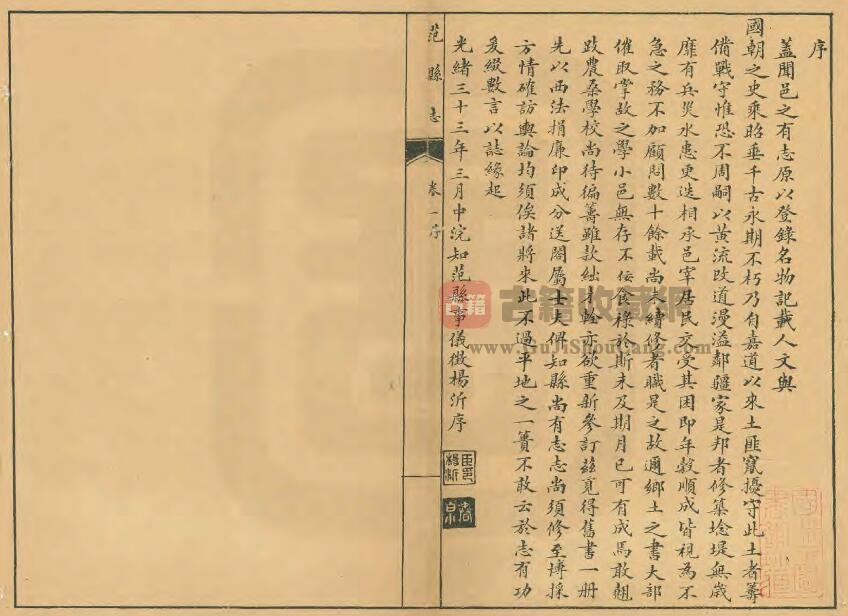 序
蓋聞邑之有志原以登錄名物記載人文與
國朝之史乘昭垂千古永期不朽乃自嘉道以來土匪竄擾守此土者籌
備戰守惟恐不周嗣以黃流改道漫溢鄰疆家是邦者修築埝堤無歲
靡有兵災水患更迭相承邑宰居民交受其困即年穀順成皆視為不
急之務不加顧問數十餘載尚未續修者職是之故邇鄉土之書大部
催取掌故之學小邑無存不佞食祿於斯未及期月已可有成焉敢翹
跂農桑學校尚待徧籌雖款絀才輇亦欲重新參訂茲覓得舊書一册
先以西法捐廉印成分送閤屬士夫俾知縣尚有志志尚須修至博採
方情確訪輿論均須俟諸將來此不過平地之一簣不敢云於志有功
爰綴數言以誌緣起
光緒三十三年三月中浣知范縣事儀徵楊沂序
范縣志
卷一序
古籍
古籍收藏網
www.GuJiShouCang.com